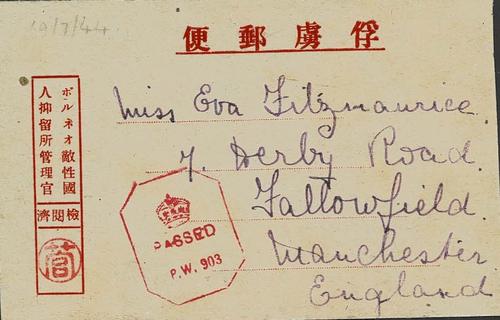 19/7/44
便郵虜俘
ボルネオ敵性國
人抑留所管理官
濟閲檢
Miss Eva Fitzmaurice.
7. Derby Road.
Fallowfield.
Manchester
England
PASSED
P.W. 903